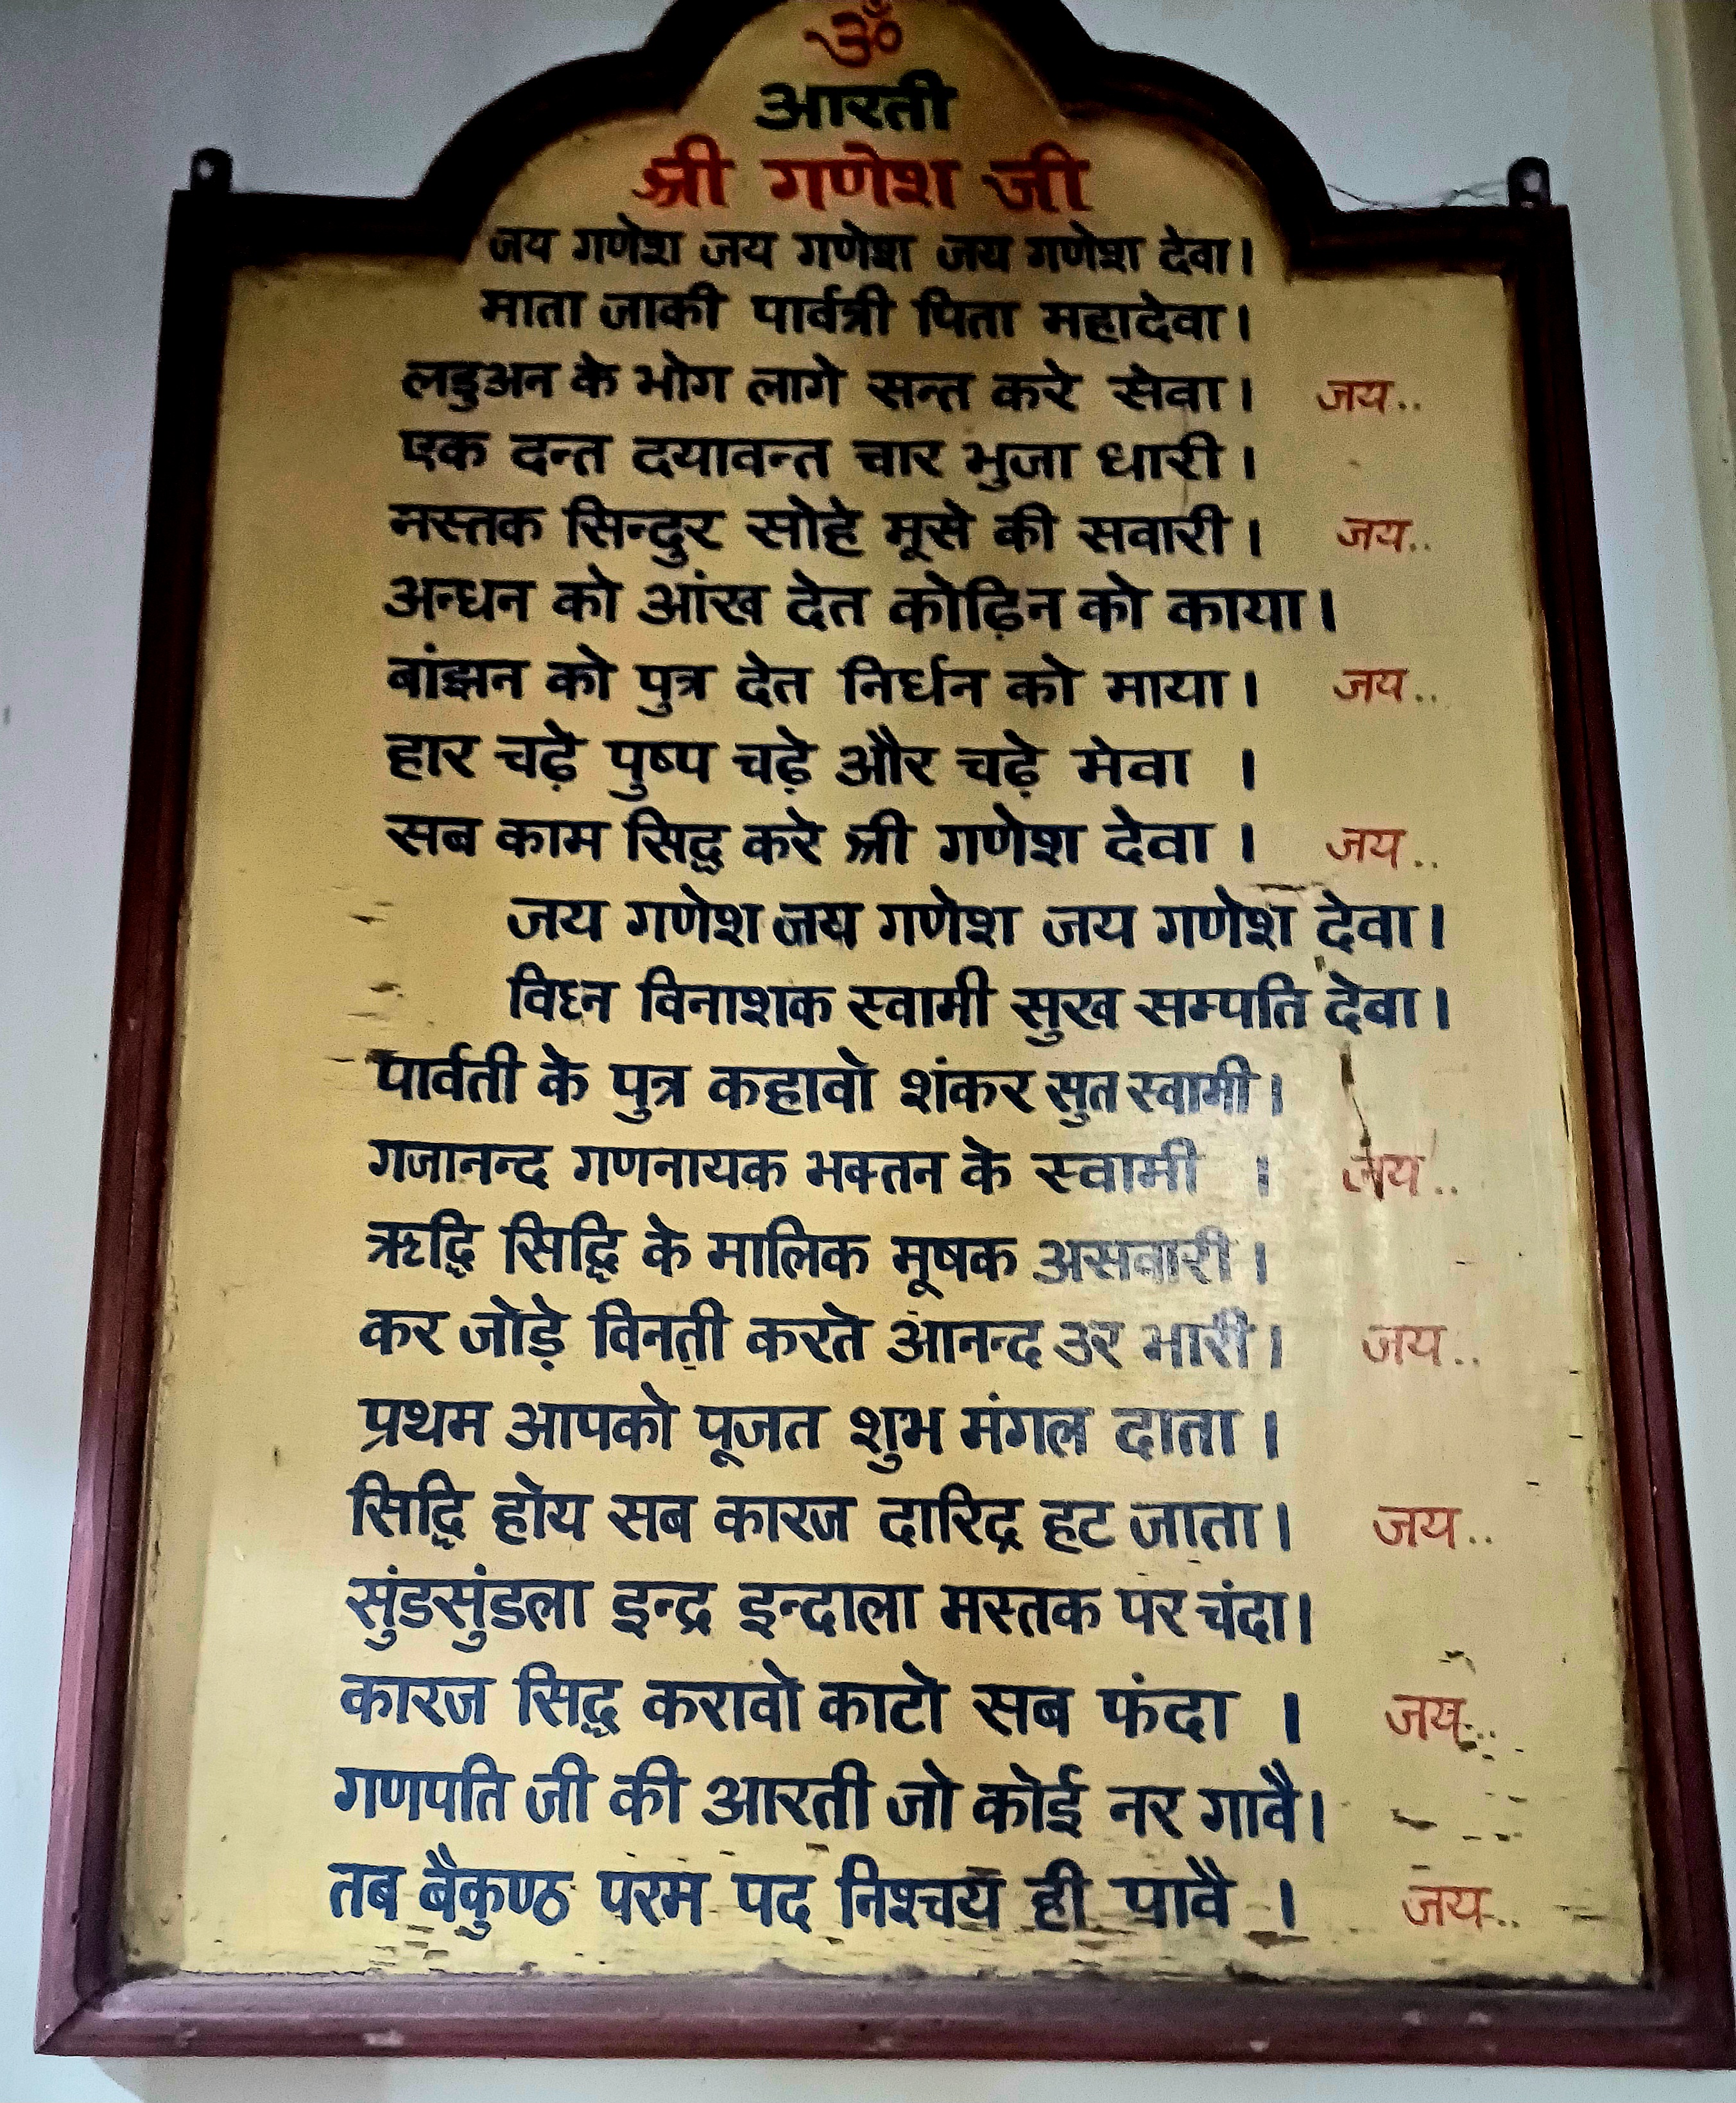 ॐ
आरती
श्री गणेश जी
जय गणेश जय गणेश जय गणेश देवा।
माता जाकी पार्वत्री पिता महादेवा।
लडुअन के भोग लागे सन्त करे सेवा। जय..
एक दन्त दयावन्त चार भुजा धारी।
मस्तक सिन्दुर सोहे मूसे की सवारी। जय..
अन्धन को आंख देत कोढ़िन को काया।
बांझन को पुत्र देत निर्धन को माया। जय..
हार चढ़े पुष्प चढ़े और चढ़े मेवा ।
सब काम सिद्ध करे श्री गणेश देवा । जय..
जय गणेश जय गणेश जय गणेश देवा।
विघ्न विनाशक स्वामी सुख सम्पति देवा।
पार्वती के पुत्र कहावो शंकर सुत स्वामी।
गजानन्द गणनायक भक्तन के स्वामी । जय..
ऋद्धि सिद्धि के मालिक मूषक असवारी।
कर जोड़े विनती करते आनन्द उर भारी। जय..
प्रथम आपको पूजत शुभ मंगल दाता।
सिद्धि होय सब कारज दारिद्र हट जाता। जय..
सुंडसुंडला इन्द्र इन्दाला मस्तक पर चंदा।
कारज सिद्ध करावो काटो सब फंदा । जय..
गणपति जी की आरती जो कोई नर गावै।
तब बैकुण्ठ परम पद निश्चय ही पावै । जय..